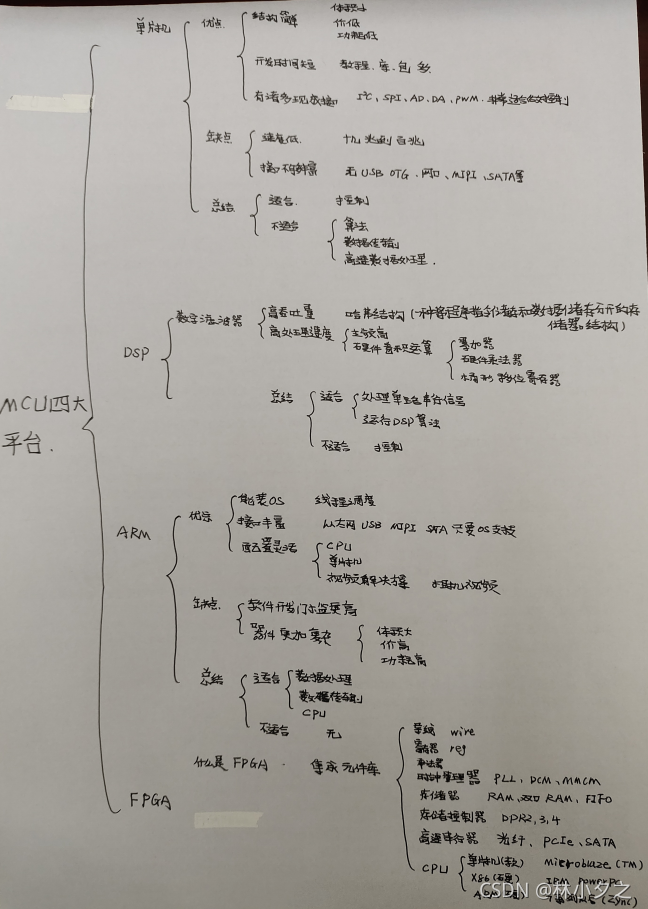 单片机
优点
结构简单
体积小
价低
功耗低
开发时间短
教程、库、包 多
I²C、SPI、AD、DA、PWM
缺点
速度低
十几兆到百兆
接口不够丰富
无 USB OTG、网口、MIPI、SATA等
总结
适合
控制
不适合
算法
数据传输
高速数据处理
MCU四大
平台.
DSP
数字滤波器
高吞吐量
哈佛结构(一种将程序指令储存和数据储存分开的存
储器结构)
高处理速度
主频高
硬件乘积运算
累加器
硬件乘法器
移位寄存器
总结
适合
处理单路串行信号
运行DSP算法
不适合
控制
ARM
优点
能装OS
线程调度
接口丰富
以太网 USB MIPI SATA 只要OS支持
配置灵活
CPU
单片机
缺点
软件开发门槛更高
器件更加复杂
体积大
价高
功耗高
总结
适合
数据处理
数据传输
CPU
不适合
无
FPGA
什么是FPGA
集成元件库
草稿 wire
寄存器 reg
乘法器
时钟管理器 PLL、DCM、MMCM
存储器 RAM、双口RAM、FIFO
存储控制器 DPR2,3,4
高速串行器 光纤、PCIe、SATA
CPU
单片机(软) Microblaze (TM)
X86(硬) IBM PowerPC
(Zynq)
CSDN @林小夕之